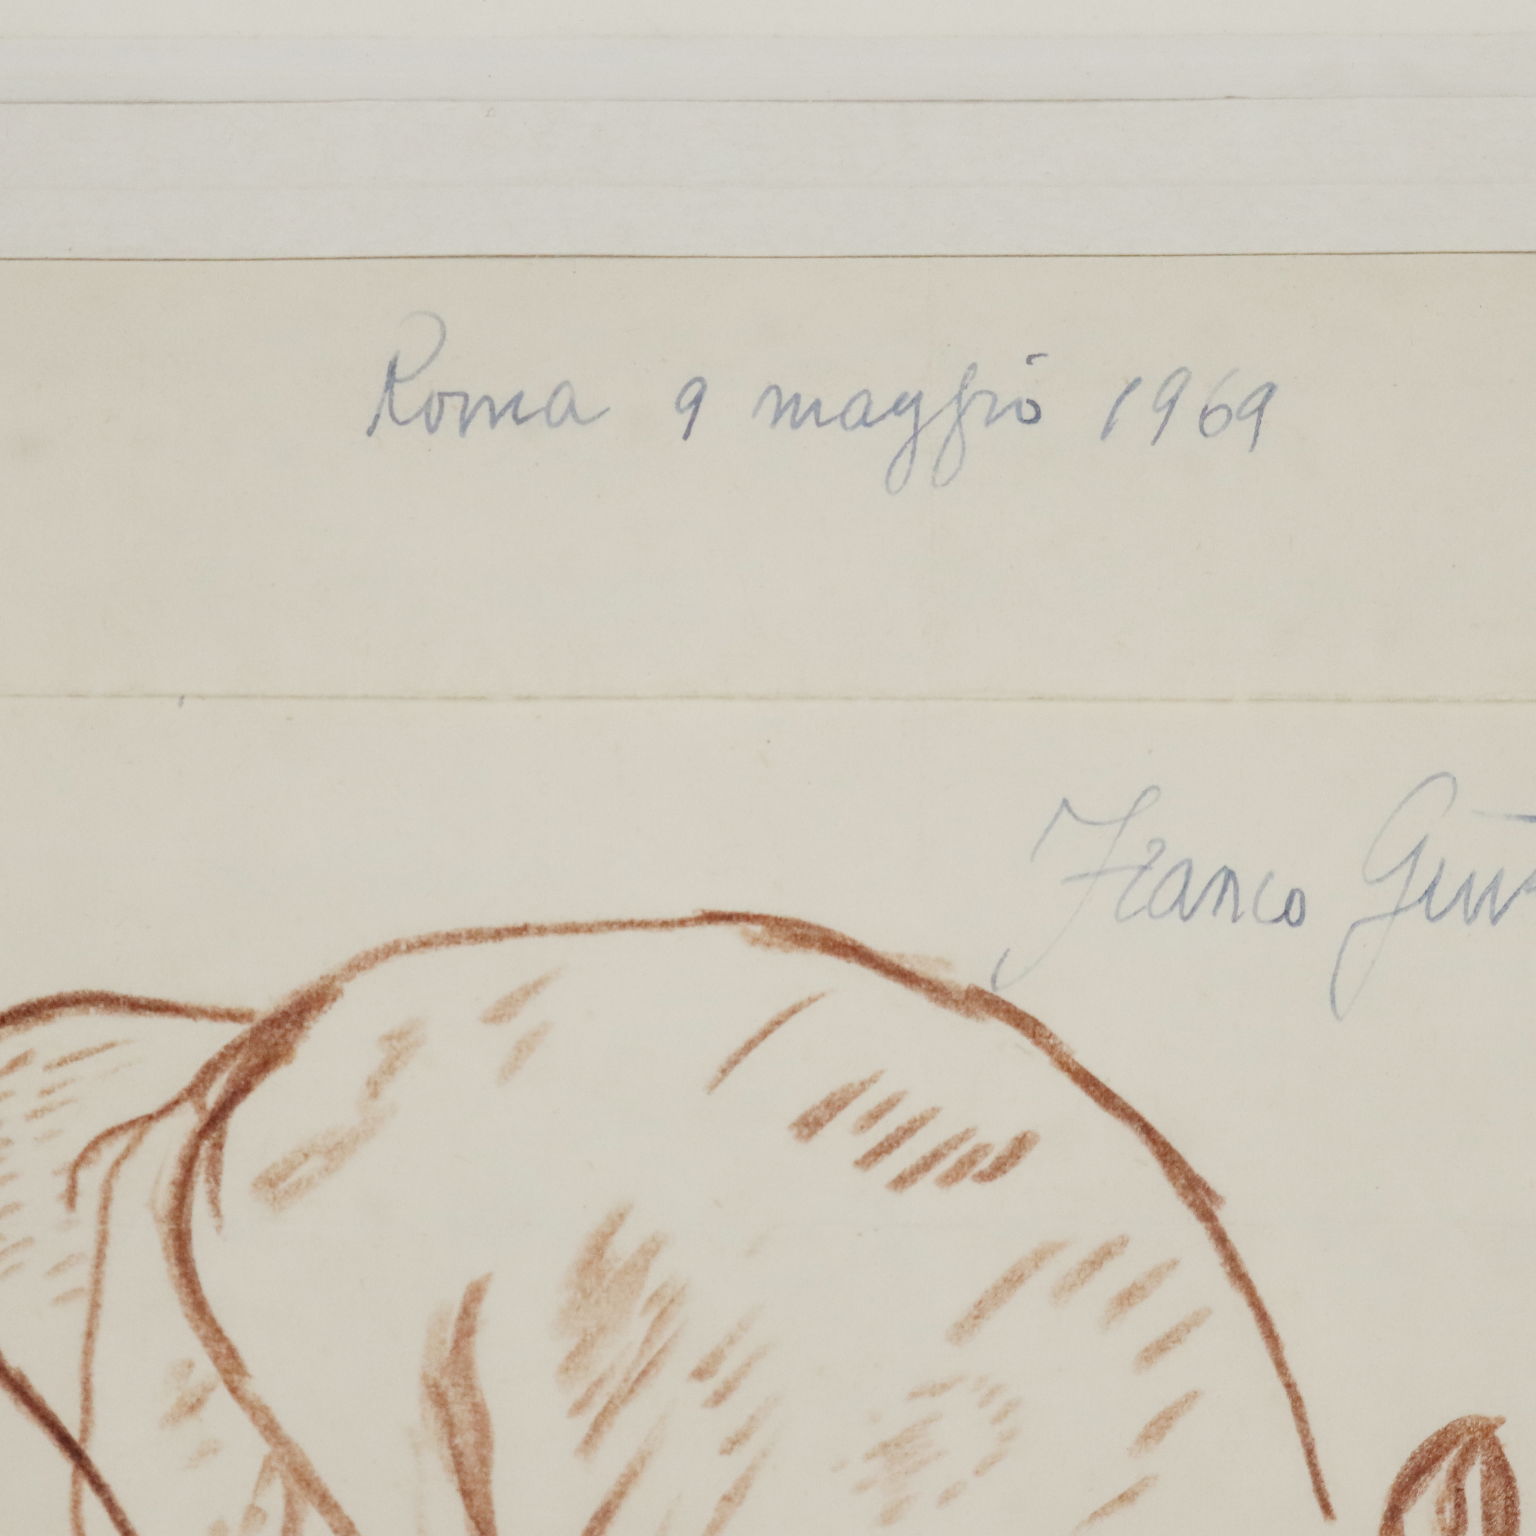 Roma 9 maggio 1969
Franco